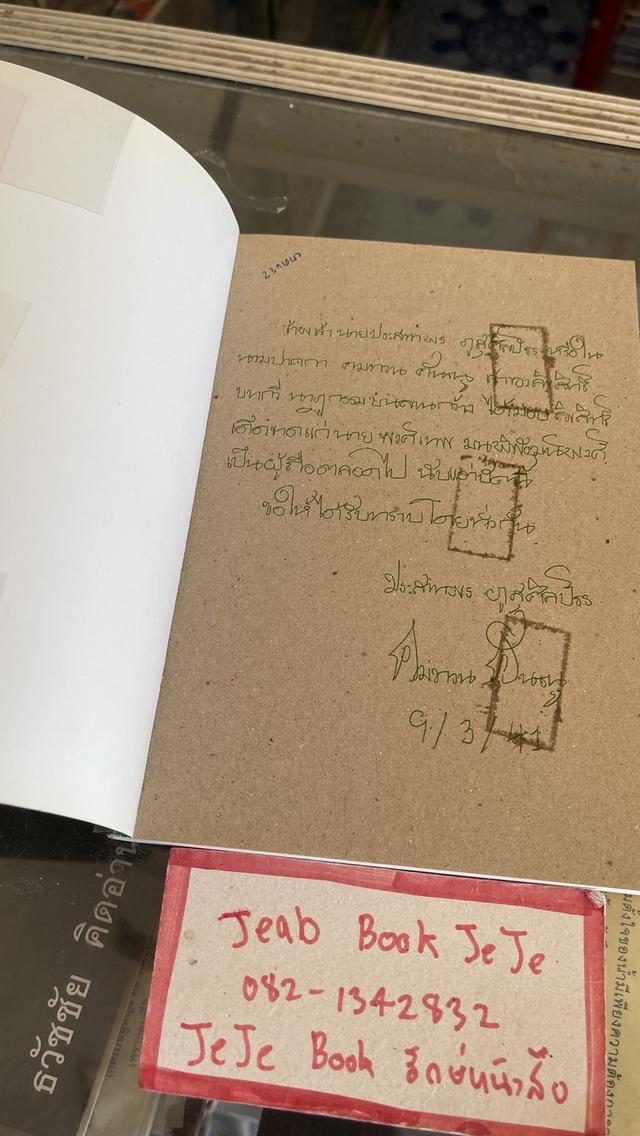 ข้าพเจ้า นายประสาทพร ภูสุศิลป์ธร หรือใน
นามปากกา คมทวน คันธนู
บทกวี นาฏกรรมบนลานกว้าง ได้มอบลิขสิทธิ์
แก่นาย พงศ์เทพ
เป็นผู้ถือตลอดไป นับแต่บัดนี้
ขอให้ได้รับทราบโดยทั่วกัน
ประสาทพร ภูสุศิลป์ธร
คมทวน คันธนู
9/3/41
Jeab Book JeJe
082-1342832
JeJe Book รักษ์หนังสือ
ธวัชชัย คิดอ่าน